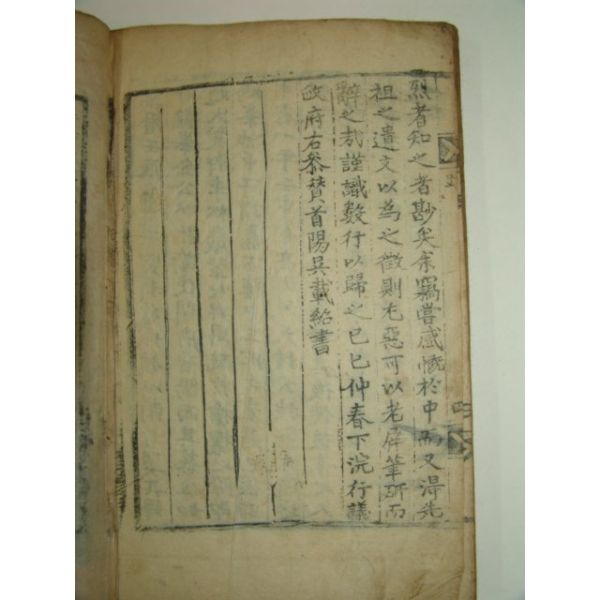 烈者知之者尠矣余竊嘗感慨於中而又得先
祖之遺文以為之徵則尤惡可以老屛筆硏而
辭之哉謹識數行以歸之己巳仲春下浣行議
政府右叅贊首陽吳載紹書